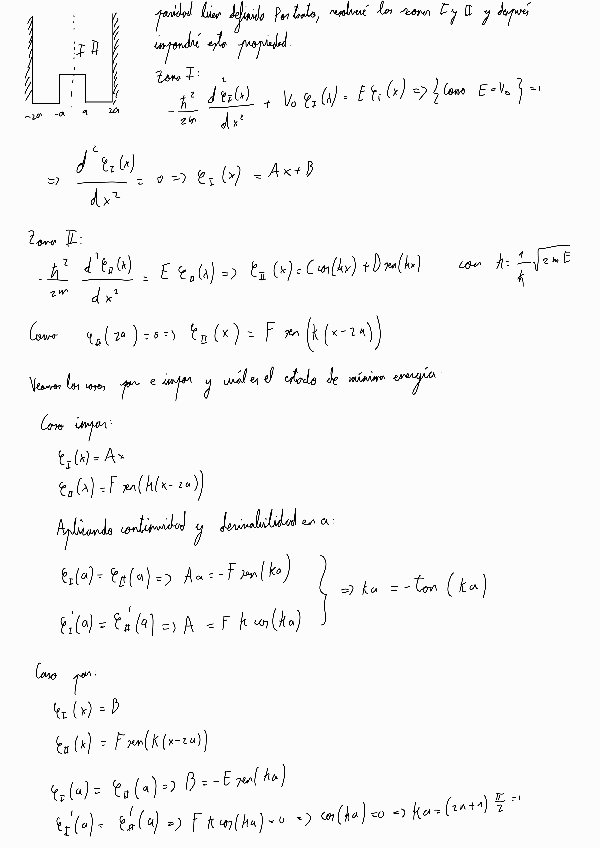 paridad bien definida Por tanto, resolveré las zonas I y II y después
impondré esta propiedad.
I II
-2a -a a 2a
Zona I:
-ħ²/2m d²φ_I(x)/dx² + V₀ φ_I(x) = E φ_I(x) => {Como E=V₀} =>
=> d²φ_I(x)/dx² = 0 => φ_I(x) = Ax+B
Zona II:
-ħ²/2m d²φ_II(x)/dx² = E φ_II(x) => φ_II(x) = C cos(kx) + D sen(kx) con k = 1/ħ √2mE
Como φ_II(2a) = 0 => φ_II(x) = F sen(k(x-2a))
Veamos los casos par e impar y cuál es el estado de mínima energía
Caso impar:
φ_I(x) = Ax
φ_II(x) = F sen(k(x-2a))
Aplicando continuidad y derivabilidad en a:
φ_I(a) = φ_II(a) => Aa = -F sen(ka)
φ_I'(a) = φ_II'(a) => A = F k cos(ka) } => ka = -tan(ka)
Caso par:
φ_I(x) = B
φ_II(x) = F sen(k(x-2a))
φ_I(a) = φ_II(a) => B = -F sen(ka)
φ_I'(a) = φ_II'(a) => F k cos(ka) = 0 => cos(ka) = 0 => ka = (2n+1) π/2 =>